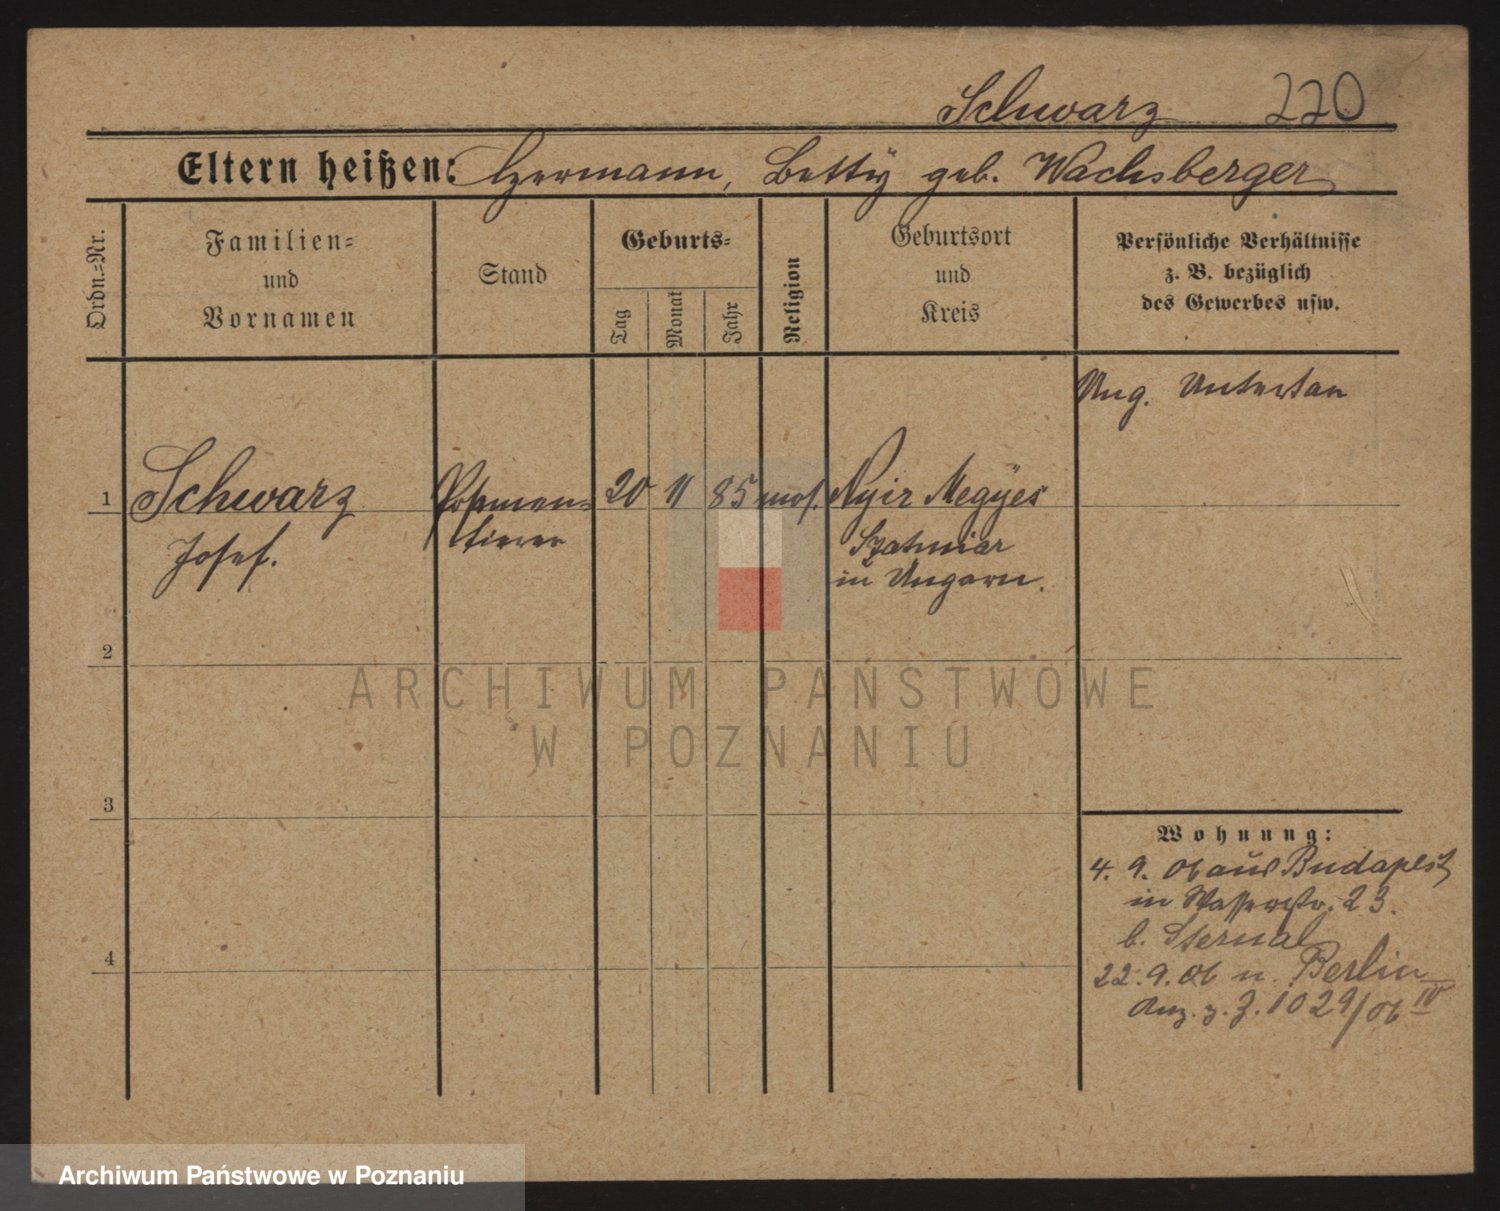 Schwarz 220
Eltern heißen: Hermann, Betty geb. Wachsberger
Ordn.=Nr.
Familien=
und
Vornamen
Stand
Geburts=
Tag
Monat
Jahr
Religion
Geburtsort
und
Kreis
Persönliche Verhältnisse
z. B. bezüglich
des Gewerbes usw.
Ung. Untertan
1 Schwarz Posamen= 20 11 85 mos. Nyir Megyes
Josef. tierer Szatmar
in Ungarn.
2
3
4
Wohnung:
4. 9. 06 aus Budapest
in Wasserstr. 23.
b. Sternal
22. 9. 06 n. Berlin
Anz. z. J. 1029/06 IV
ARCHIWUM PAŃSTWOWE
W POZNANIU
Archiwum Państwowe w Poznaniu